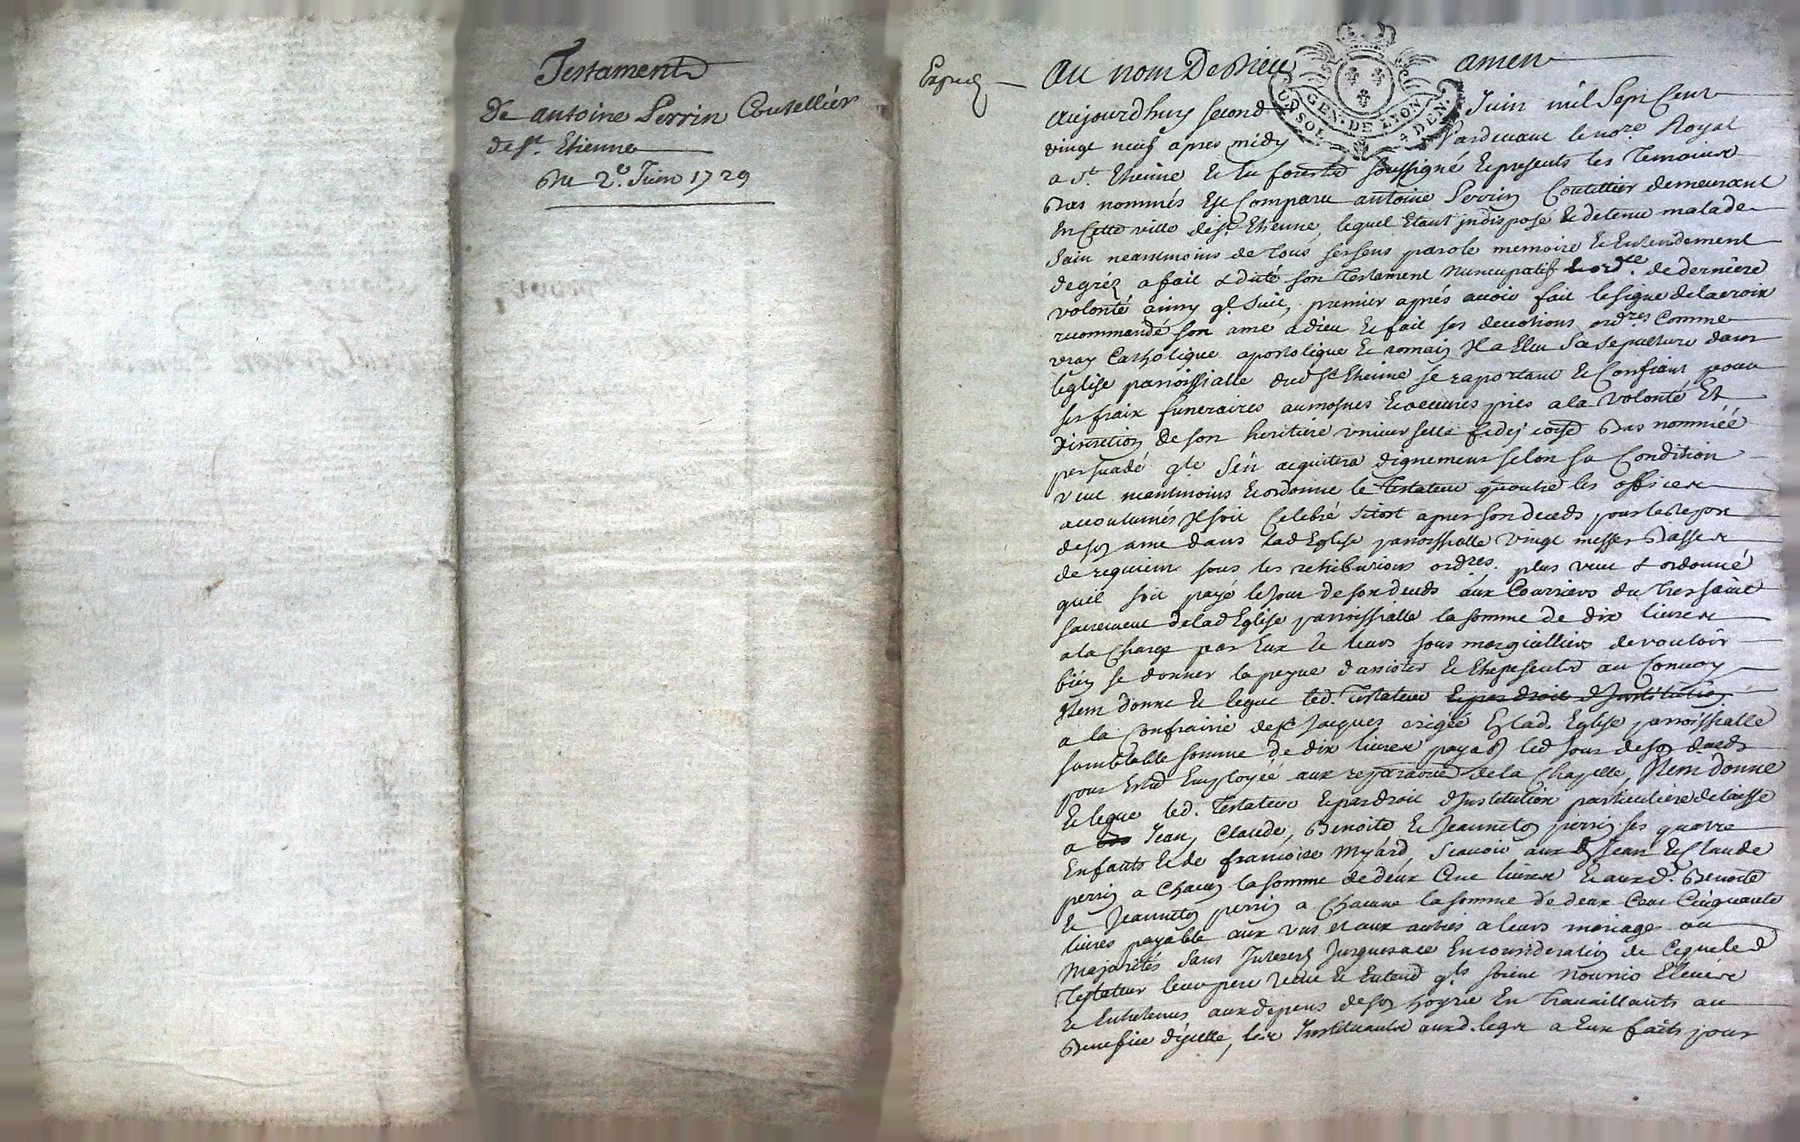 Testament
De antoine Perrin Coutellier
de St. Etienne
Du 2e. Juin 1729
Expedié
au nom De Dieu amen
GEN. DE LYON
UN SOL 4 DEN.
aujourdhuy second Juin mil sept cent
vingt neuf apres midy Pardevant le nore Royal
a St. Etienne et en forest soussigné et presents les temoins
bas nommés est comparu antoine Perrin Coutellier demeurant
en cette ville de St. Etienne, lequel etant indisposé et detenu malade
sain neantmoins de tous ses sens parole memoire et entendement
de gréz a fait & dicté son testament nuncupatif et ordre. de derniere
volonté ainsy q. suit, premier aprés avoir fait le signe de la croix
recommandé son ame a dieu et fait ses devotions ordres comme
vray Catholique apostolique et romain Il a Eleu sa sepulture dans
leglise parroissialle dud St Etienne se raportant et confiant pour
ses fraix funeraires aumosnes et oeuvres pies a la volonté Et
discretion de son heritiere universelle bas nommée
persuadé qle s'en acquitera dignement selon sa Condition
veut neantmoins et ordonne le testateur quoutre les offices
accoutumés Il soit celebré sitost apres son deceds pour le repos
de son ame dans lad Eglise parroissialle vingt messes basses
de requiem sous les retributions ordres. plus veut & ordonne
quil soit payé le jour de son deceds aux Courriers du tres saint
sacrement de lad Eglise parroissialle la somme de dix livres
a la charge par Eux et leurs sous margialliers de vouloir
bien se donner la peyne d'assister et au Convoy
Item donne et legue led. testateur et par droit d'institution
a la confrairie de St Jacques erigée En lad. Eglise parroissialle
semblable somme de dix livres payab led jour de son deceds
pour Estre Employée aux reparaons de la Chapelle, Item donne
et legue led. testateur et par droit d'institution particuliere delaisse
a Jean, Claude, Benoite et Jeanneton perrin ses quatre
Enfants et de francoise Myard, scavoir aux d Jean et Claude
perrin a chacun la somme de deux Cent livres et aux d. Benoite
et Jeanneton perrin a chacune la somme de deux Cent Cinquante
livres payable aux uns et aux autres a leurs mariages ou
majorités sans Interest jusques a ce En consideration de ce que led
testateur leur pere veut et entend qls soient nourris Elevés
et Entretenus aux depens de son hoyrie En travaillants au
benefice d'ycelle, les Instituants aux d. legs a Eux faits pour